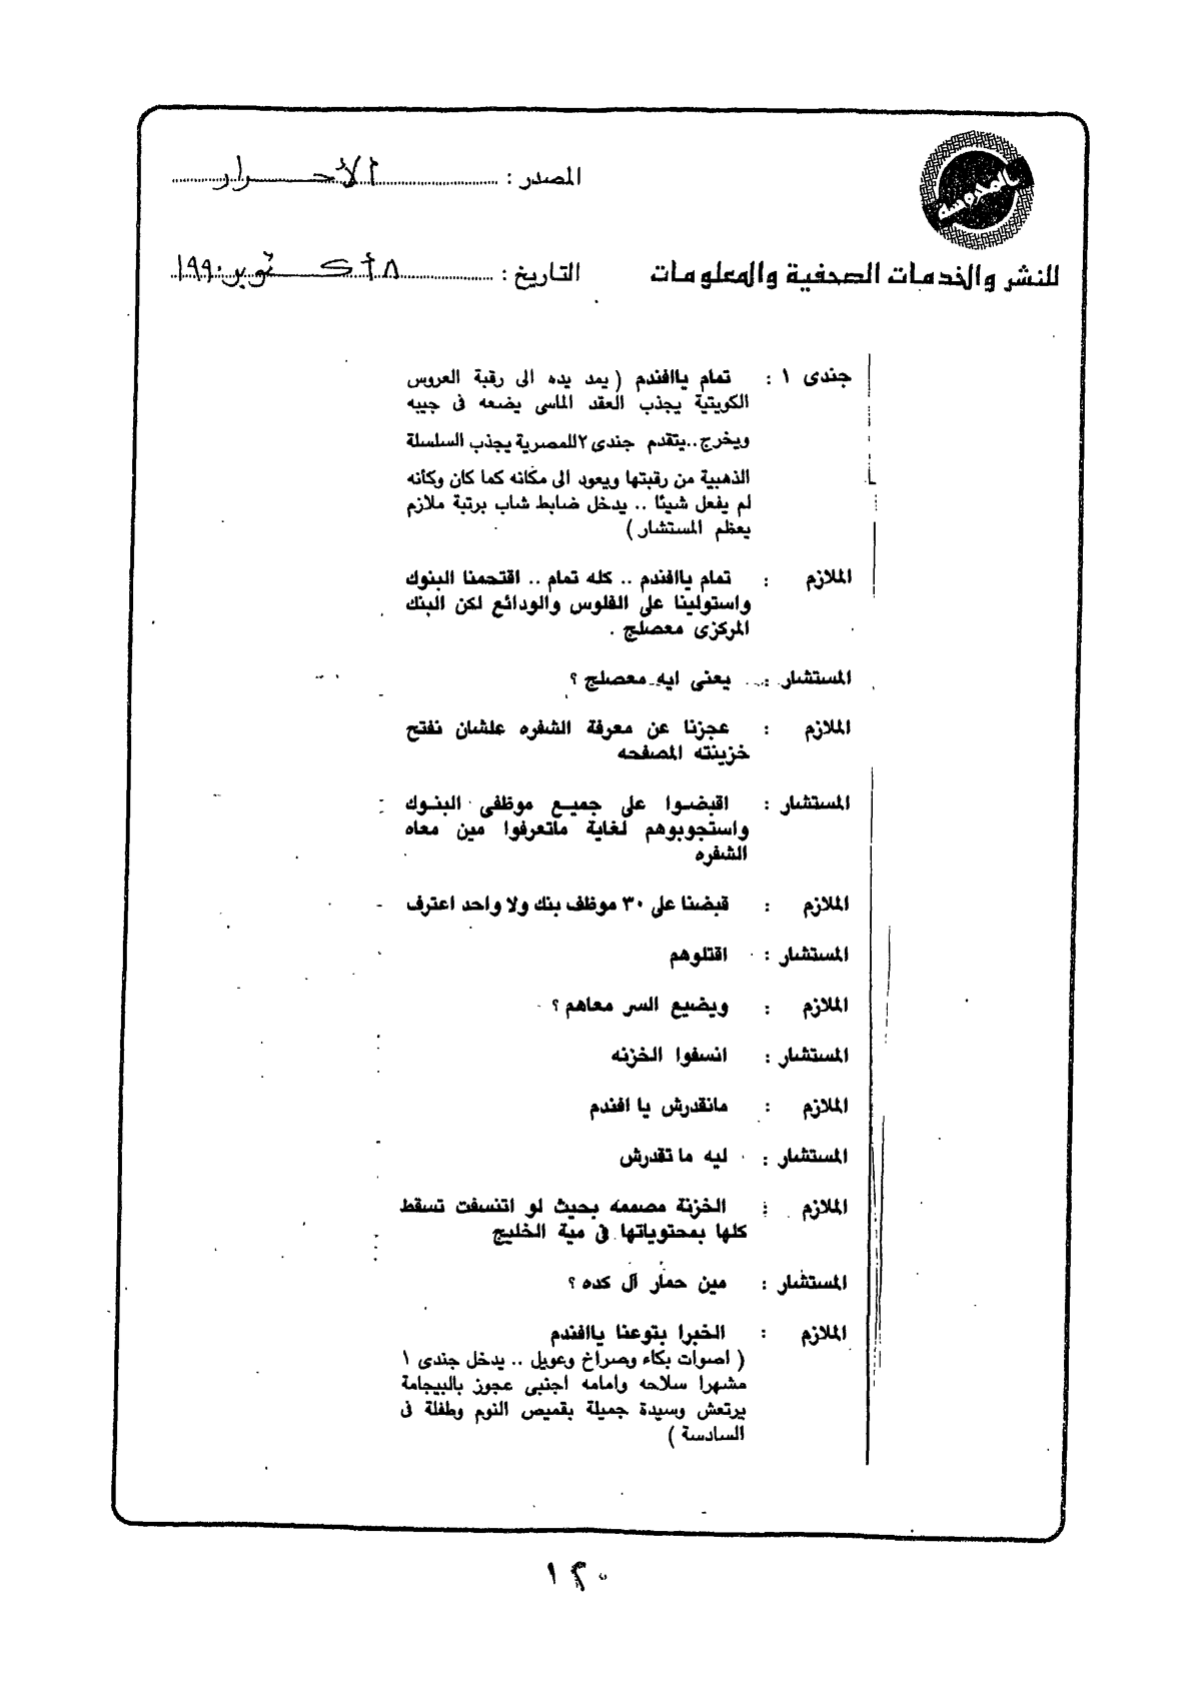 المحروسة
المصدر : الأحرار
للنشر والخدمات الصحفية والمعلومات
التاريخ : ٨ أكتوبر ١٩٩٠
جندى ١ : تمام ياافندم ( يمد يده الى رقبة العروس
الكويتية يجذب العقد الماسى يضعه فى جيبه
ويخرج..يتقدم جندى ٢ للمصرية يجذب السلسلة
الذهبية من رقبتها ويعود الى مكانه كما كان وكأنه
لم يفعل شيئا .. يدخل ضابط شاب برتبة ملازم
يعظم المستشار )
الملازم : تمام ياافندم .. كله تمام .. اقتحمنا البنوك
واستولينا على الفلوس والودائع لكن البنك
المركزى معصلج .
المستشار : يعنى ايه معصلج ؟
الملازم : عجزنا عن معرفة الشفره علشان نفتح
خزينته المصفحه
المستشار : اقبضوا على جميع موظفى البنوك
واستجوبوهم لغاية ماتعرفوا مين معاه
الشفره
الملازم : قبضنا على ٣٠ موظف بنك ولا واحد اعترف
المستشار : اقتلوهم
الملازم : ويضيع السر معاهم ؟
المستشار : انسفوا الخزنه
الملازم : مانقدرش يا افندم
المستشار : ليه ما تقدرش
الملازم : الخزنة مصممه بحيث لو اتنسفت تسقط
كلها بمحتوياتها فى مية الخليج
المستشار : مين حمار آل كده ؟
الملازم : الخبرا بتوعنا ياافندم
( اصوات بكاء وصراخ وعويل .. يدخل جندى ١
مشهرا سلاحه وامامه اجنبى عجوز بالبيجامة
يرتعش وسيدة جميلة بقميص النوم وطفلة فى
السادسة )
١٢٠